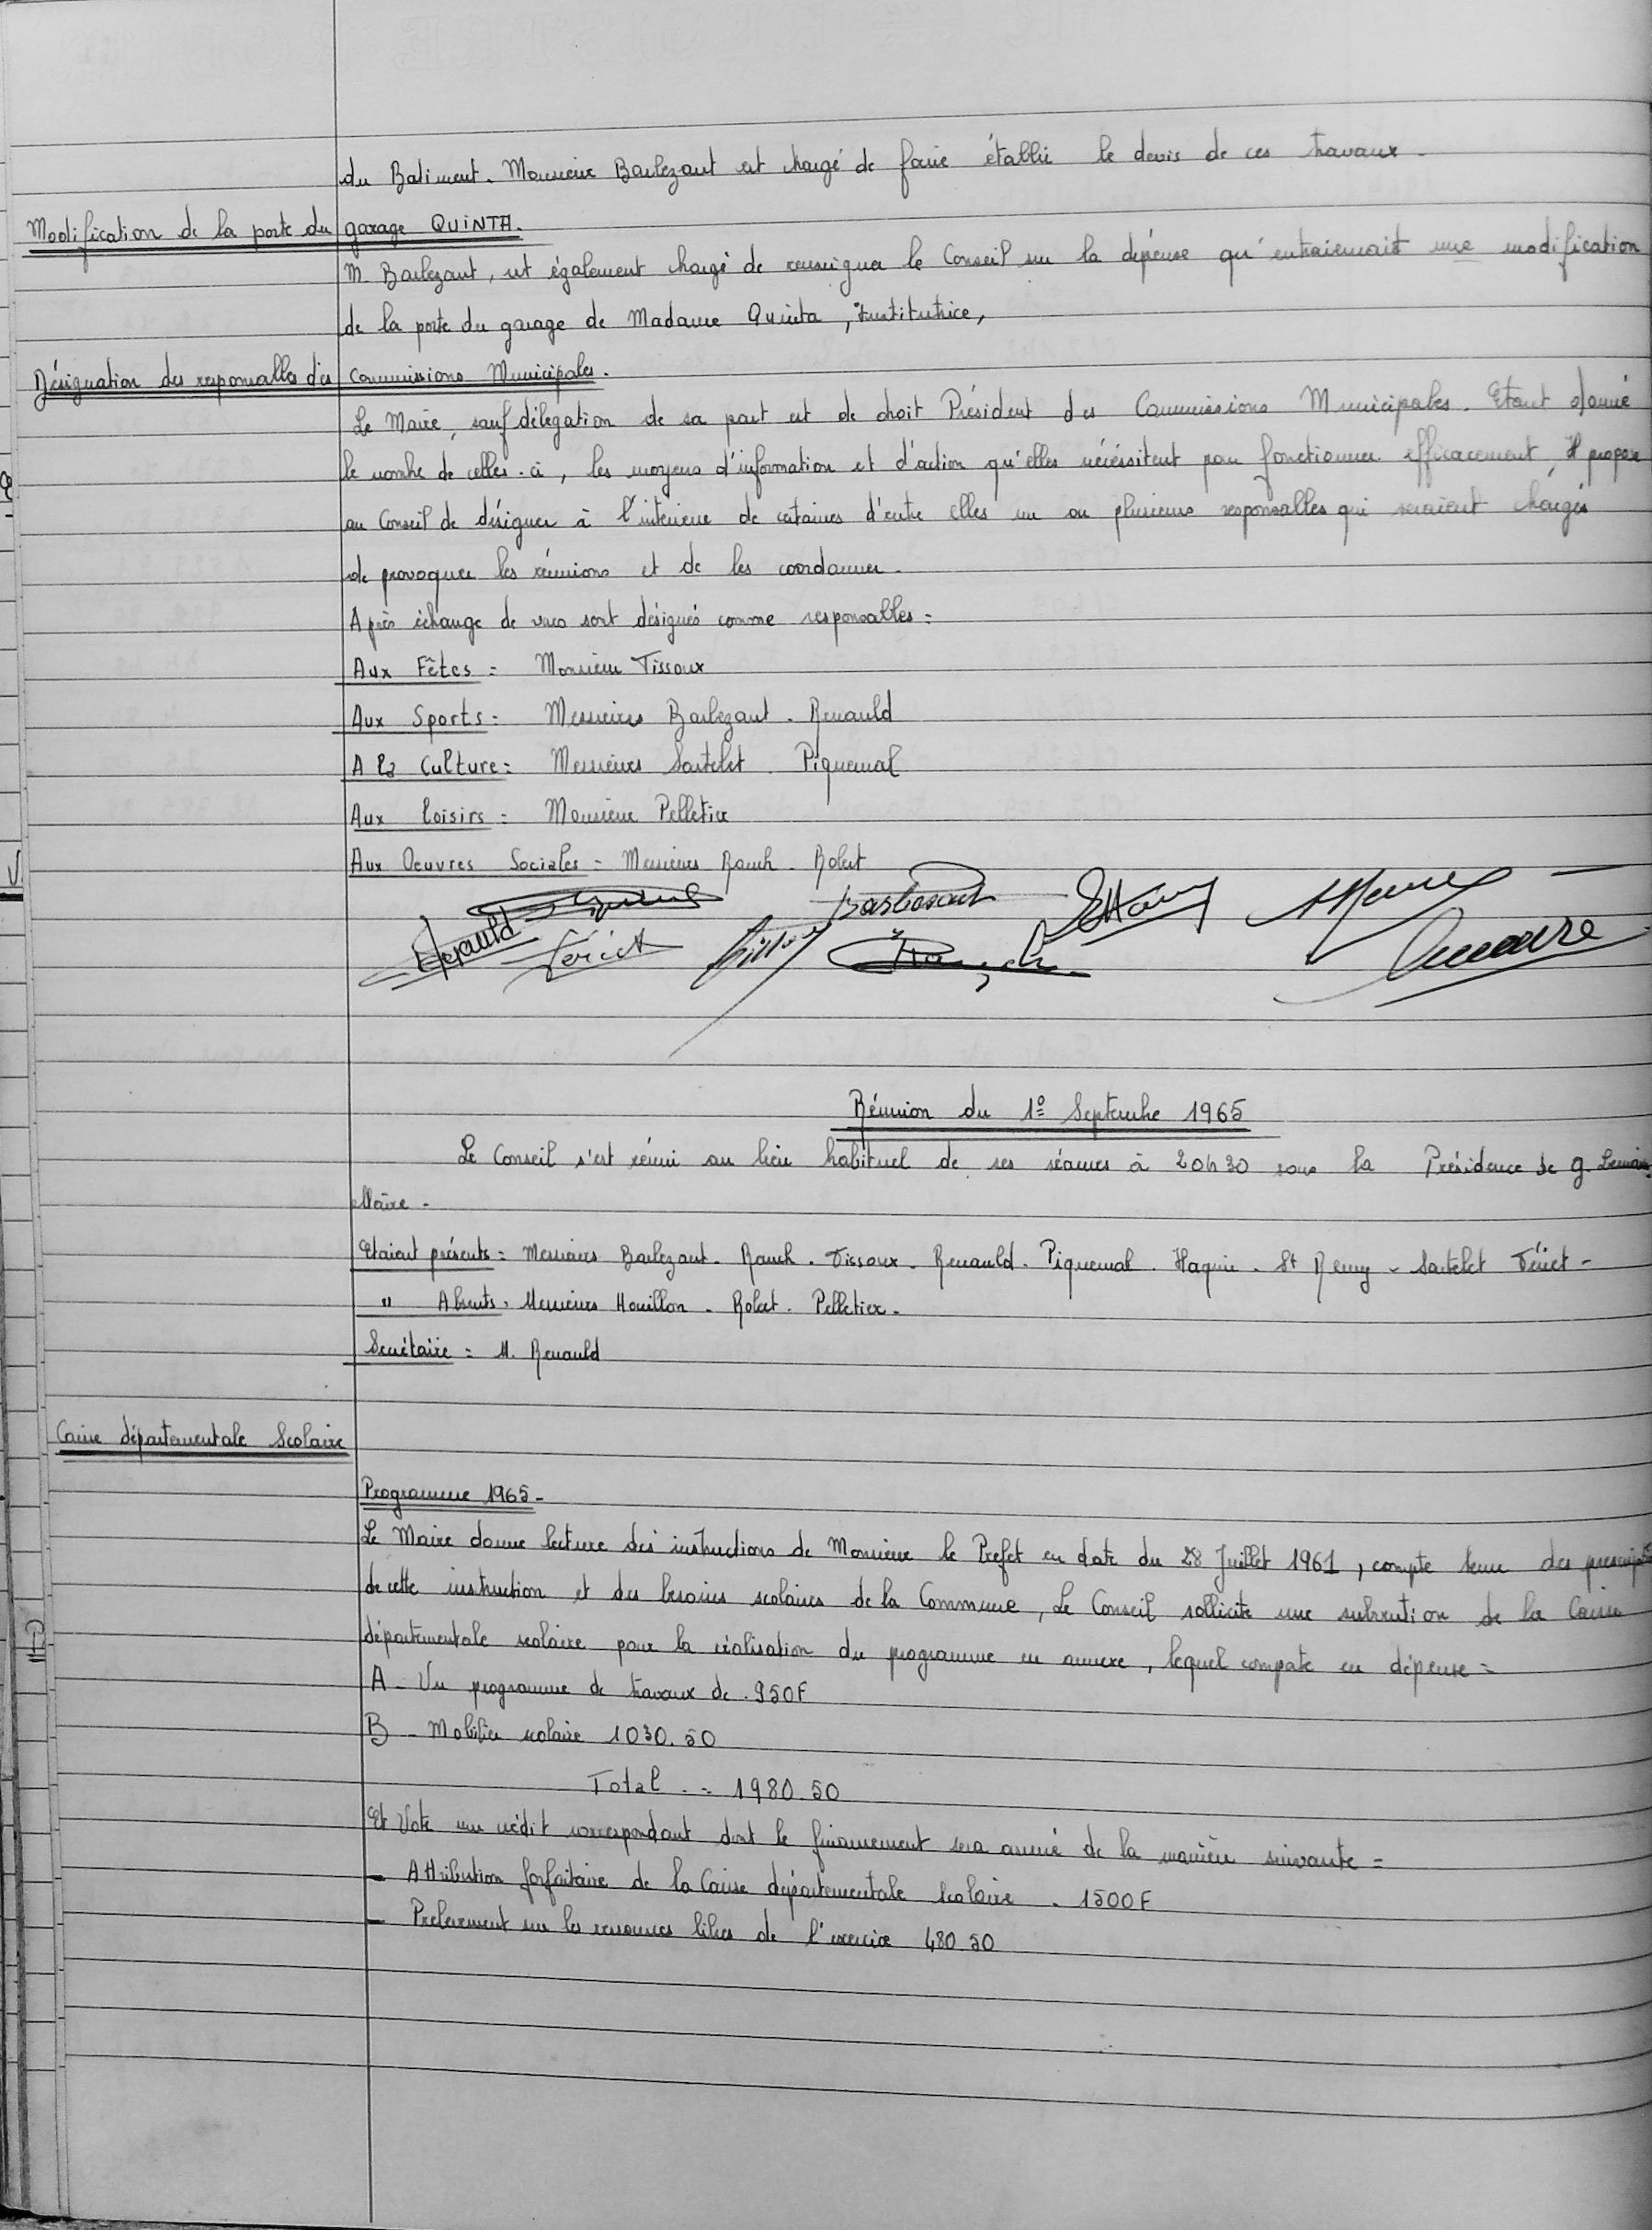 du Batiment. Monsieur Barbezant est chargé de faire établir le devis de ces travaux -
Modification de la porte du garage QUINTA.
M. Barbezant, est également chargé de renseigner le Conseil sur la dépense qu'entrainerait une modification
de la porte du garage de Madame Quinta, Institutrice,
Désignation des responsables des Commissions Municipales.
Le Maire, sauf délégation de sa part est de droit Président des Commissions Municipales. Etant donné
le nombre de celles-ci, les moyens d'information et d'action qu'elles nécéssitent pour fonctionner efficacement, Il propose
au Conseil de désigner à l'intérieur de certaines d'entre elles un ou plusieurs responsables qui seraient chargés
de provoquer les réunions et de les coordonner.
Après échange de vues sont désignés comme responsables =
Aux Fêtes = Monsieur Tissoux
Aux Sports = Messieurs Barbezant - Renauld
A la Culture = Messieurs Sartelet . Piquemal
Aux loisirs = Monsieur Pelletier
Aux Oeuvres Sociales = Messieurs Rauch - Robert
Renauld
Barbezant
Réunion du 1º Septembre 1965
Le Conseil s'est réuni au lieu habituel de ses séances à 20h30 sous la Présidence de G. Lemaire
Maire -
Etaient présents = Messieurs Barbezant - Rauch . Tissoux - Renauld - Piquemal . Haquin . St Remy - Sartelet Fériet -
" Absents = Messieurs Houillon - Robert - Pelletier -
Secrétaire = M. Renauld
Caisse départementale Scolaire
Programme 1965 -
Le Maire donne lecture des instructions de Monsieur le Prefet en date du 28 Juillet 1961, compte tenu des
de cette instruction et des besoins scolaires de la Commune, Le Conseil sollicite une subvention de la Caisse
départementale scolaire pour la réalisation du programme en annexe, lequel comporte en dépense =
A - Un programme de travaux de . 950F
B - Mobilier scolaire 1030.50
Total . = 1980.50
Et Vote un crédit correspondant dont le financement sera assuré de la manière suivante =
- Attribution forfaitaire de la Caisse départementale scolaire - 1500F
- Prelevement sur les ressources libres de l'exercice 480.50